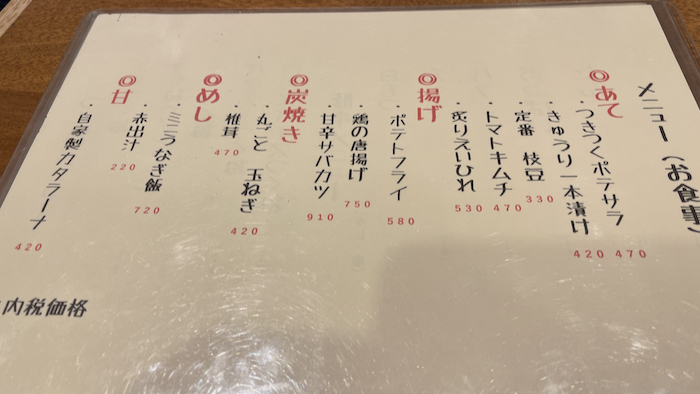 メニュー(お食事)
◎あて
・つきつくポテサラ 470
・きゅうり一本漬け 420
・定番 枝豆 330
・トマトキムチ 470
・炙りえいひれ 530
◎揚げ
・ポテトフライ 580
・鶏の唐揚げ 750
・甘辛サバカツ 910
◎炭焼き
・丸ごと 玉ねぎ 420
・椎茸 470
◎めし
・ミニうなぎ飯 720
・赤出汁 220
◎甘
・自家製カタラーナ 420
内税価格